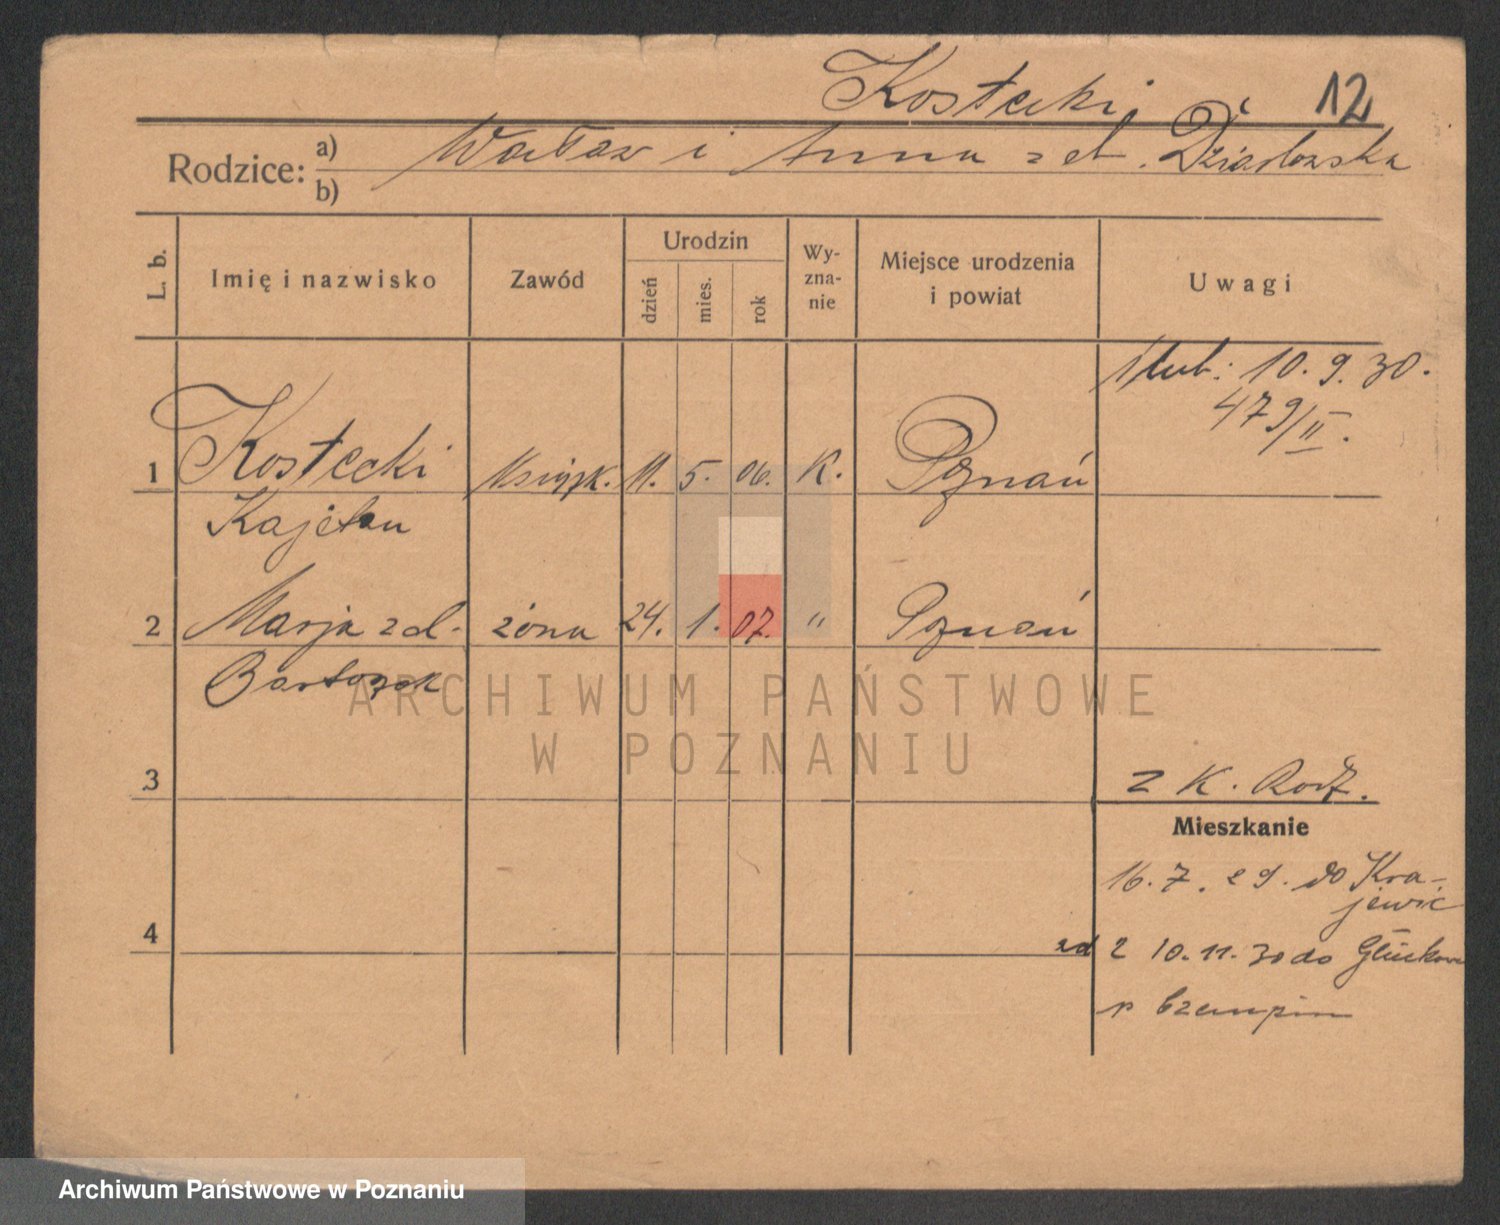 Kostecki 12
Rodzice: a) Wacław i Anna z d. Działowska
b)
L. b. Imię i nazwisko Zawód Urodzin dzień mies. rok Wy-zna-nie Miejsce urodzenia i powiat Uwagi
ślub: 10.9.30.
479/II.
1 Kostecki Książk. 11. 5. 06. K. Poznań
Kajetan
2 Marja z d. żona 24. 1. 07. " Poznań
Bartoszek
3 z K. Rodz.
Mieszkanie
16.7.29. do Kra-
jewic
4 ad 2 10.11.30 do
p
ARCHIWUM PAŃSTWOWE
W POZNANIU
Archiwum Państwowe w Poznaniu